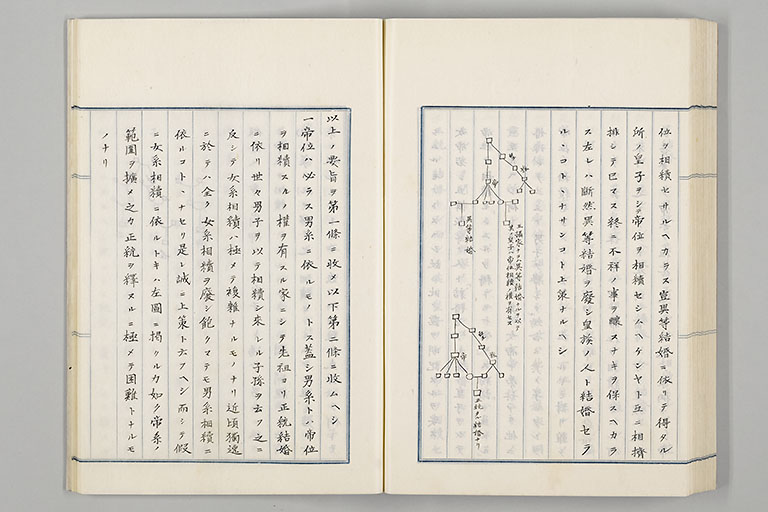 位ヲ相續セサルヘカラス豈異等結婚ニ依リテ得タル
所ノ皇子ヲシテ帝位ヲ相續セシムヘケンヤト互ニ相擠
排シテ已マス終ニ不祥ノ事ヲ醸スナキヲ保スヘカラ
ス左レハ断然異等結婚ヲ廢シ皇族ノ人ト結婚セラ
ルヽコトヽナサンコト上策ナルヘシ
帝
異等結婚
帝
正統ナル結婚ナリ
以上ノ要旨ヲ第一條ニ收メ以下第二條ニ收ムヘシ
一帝位ハ必ラス男系ニ依ルモノトス蓋シ男系トハ帝位
ヲ相續スルノ權ヲ有スル家ニシテ先祖ヨリ正統結婚
ニ依リ世々男子ヲ以テ相續シ来レル子孫ヲ云フ之ニ
反シテ女系相續ハ極メテ複雑ナルモノナリ近頃獨逸
ニ於テハ全ク女系相續ヲ廢シ飽クマテモ男系相續ニ
依ルコトヽナセリ是レ誠ニ上策ト云フヘシ而シテ假
ニ女系相續ニ依ルトキハ左圖ニ掲クルカ如ク帝系ノ
範圍ヲ擴メ之カ正統ヲ釋スルニ極メテ困難トナルモ
ノナリ